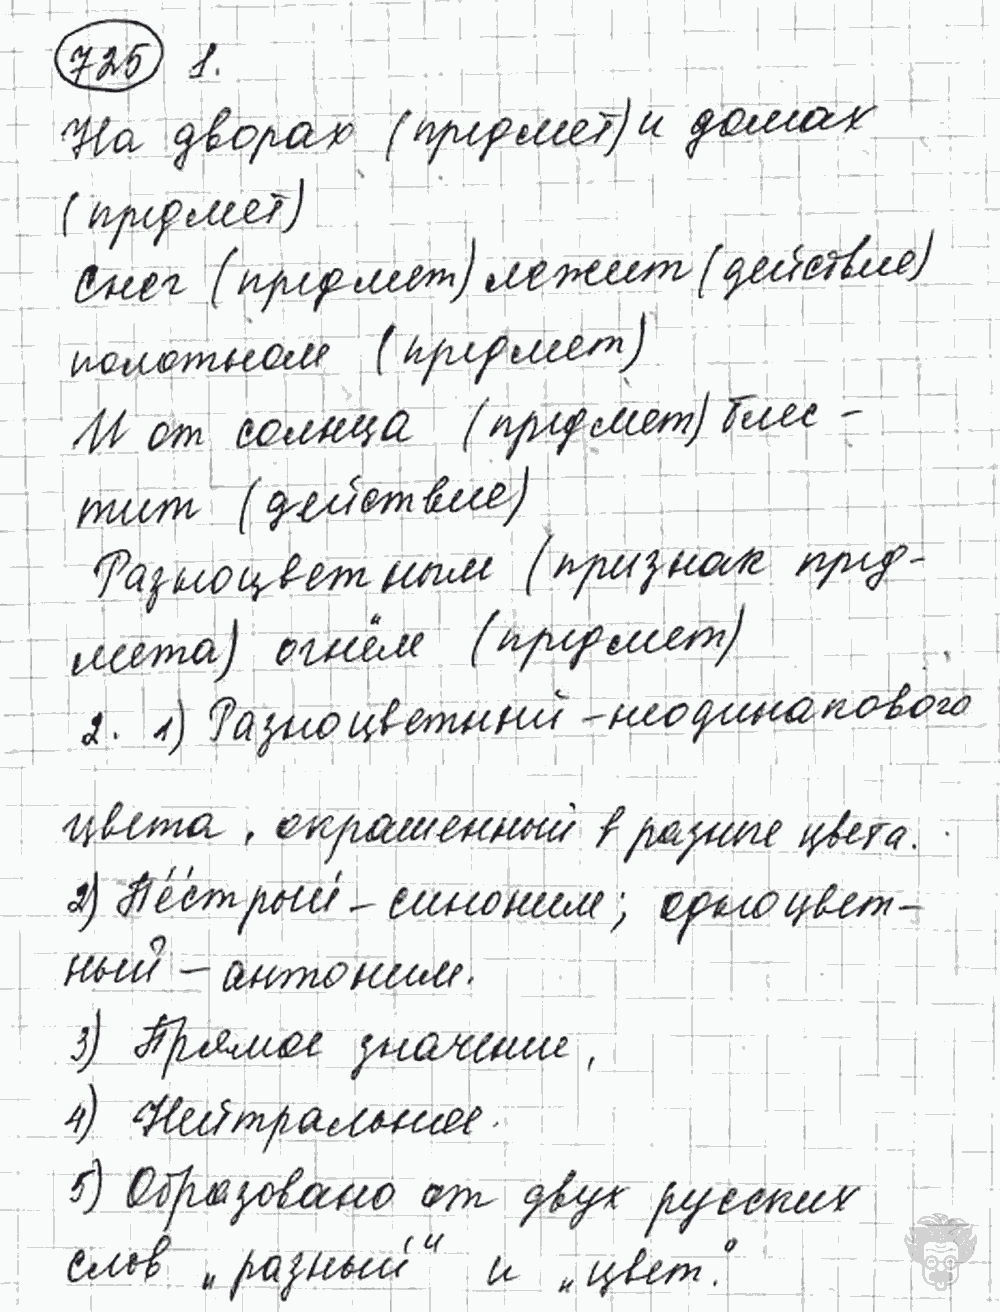 725 1.
На дворах (предмет) и домах
(предмет)
Снег (предмет) лежит (действие)
полотном (предмет)
И от солнца (предмет) блес -
тит (действие)
Разноцветным (признак пред-
мета) огнём (предмет)
2. 1) Разноцветный - неодинакового
цвета, окрашенный в разные цвета.
2) Пёстрый - синоним; одноцвет-
ный - антоним.
3) Прямое значение.
4) Нейтральное.
5) Образовано от двух русских
слов „разный" и „цвет."